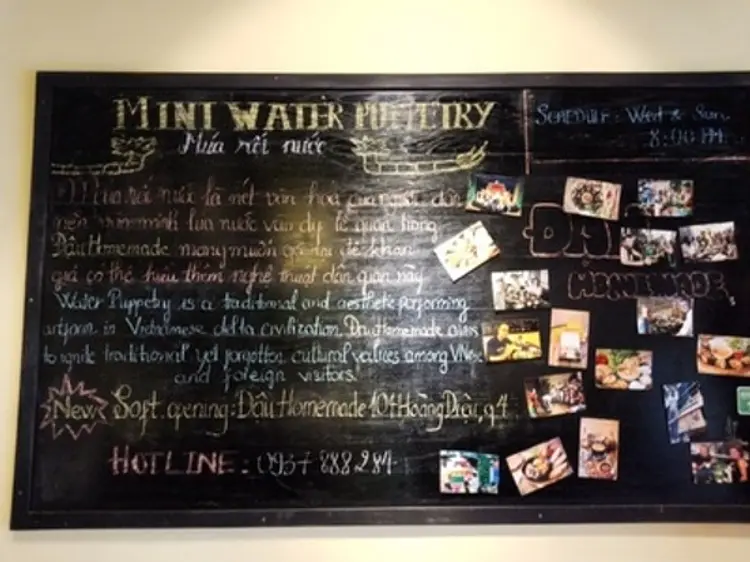 MINI WATER PUPPETRY
Múa rối nước
SCHEDULE: Wed & Sun
8:00 PM
Múa rối nước là nét văn hoá của người dân
văn minh lúa nước
Dậu Homemade mong muốn để khán
giả có thể hiểu thêm nghệ thuật dân gian này
Water Puppetry is a traditional and aesthetic performing
artform in Vietnamese delta civilization. Dậu Homemade aims
to ignite traditional yet forgotten cultural values among VNese
and foreign visitors.
New Soft opening: Dậu Homemade 101 Hoàng Diệu, q4
HOTLINE: 0937 888 284
HOMEMADE